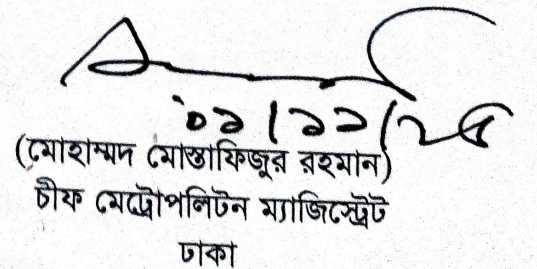 ০৯/১১/২৫
(মোহাম্মদ মোস্তাফিজুর রহমান)
চীফ মেট্রোপলিটন ম্যাজিস্ট্রেট
ঢাকা